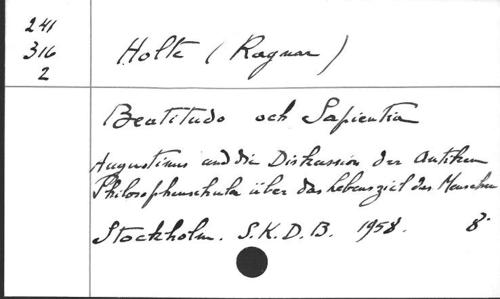 241
316
2
Holte (Ragnar)
Beatitudo och Sapientia
Augustinus und die Diskussion der antiken
Philosophenschulen über das Lebensziel des Menschen
Stockholm. S.K.D.B. 1958. 8°